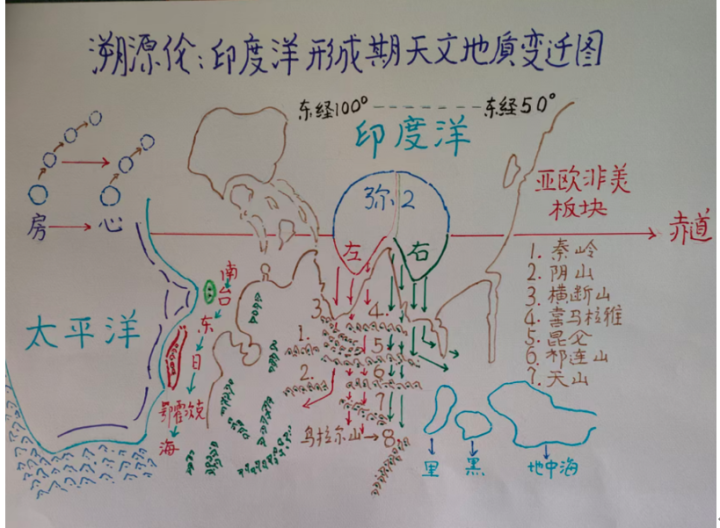 溯源伦:印度洋形成期天文地质变迁图
东经100° 东经50°
印度洋
弥2
左 右
房 心
赤道
亚欧非美
板块
1. 秦岭
2. 阴山
3. 横断山
4. 喜马拉雅
5. 昆仑
6. 祁连山
7. 天山
太平洋
南
台
东
日
鄂霍次克
海
3.
4.
1.
5
2.
6
7
乌拉尔山→8
里 黑 地中海